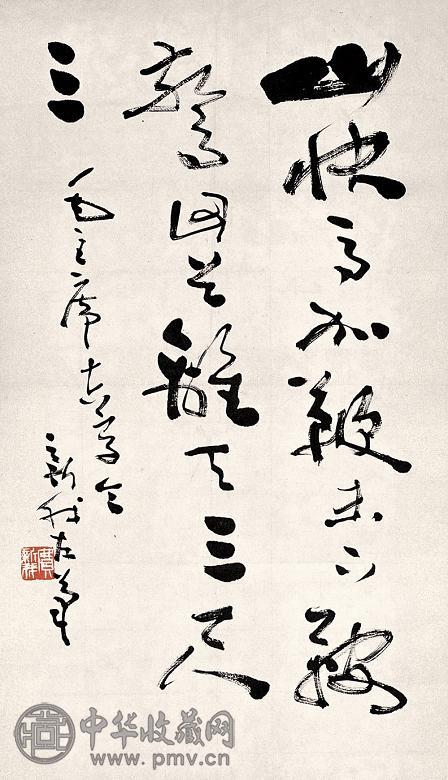 山快马加鞭未下鞍
驚回首離天三尺
三
毛主席十六字令
新我左笔
費新我
中华收藏网
www.pmv.cn